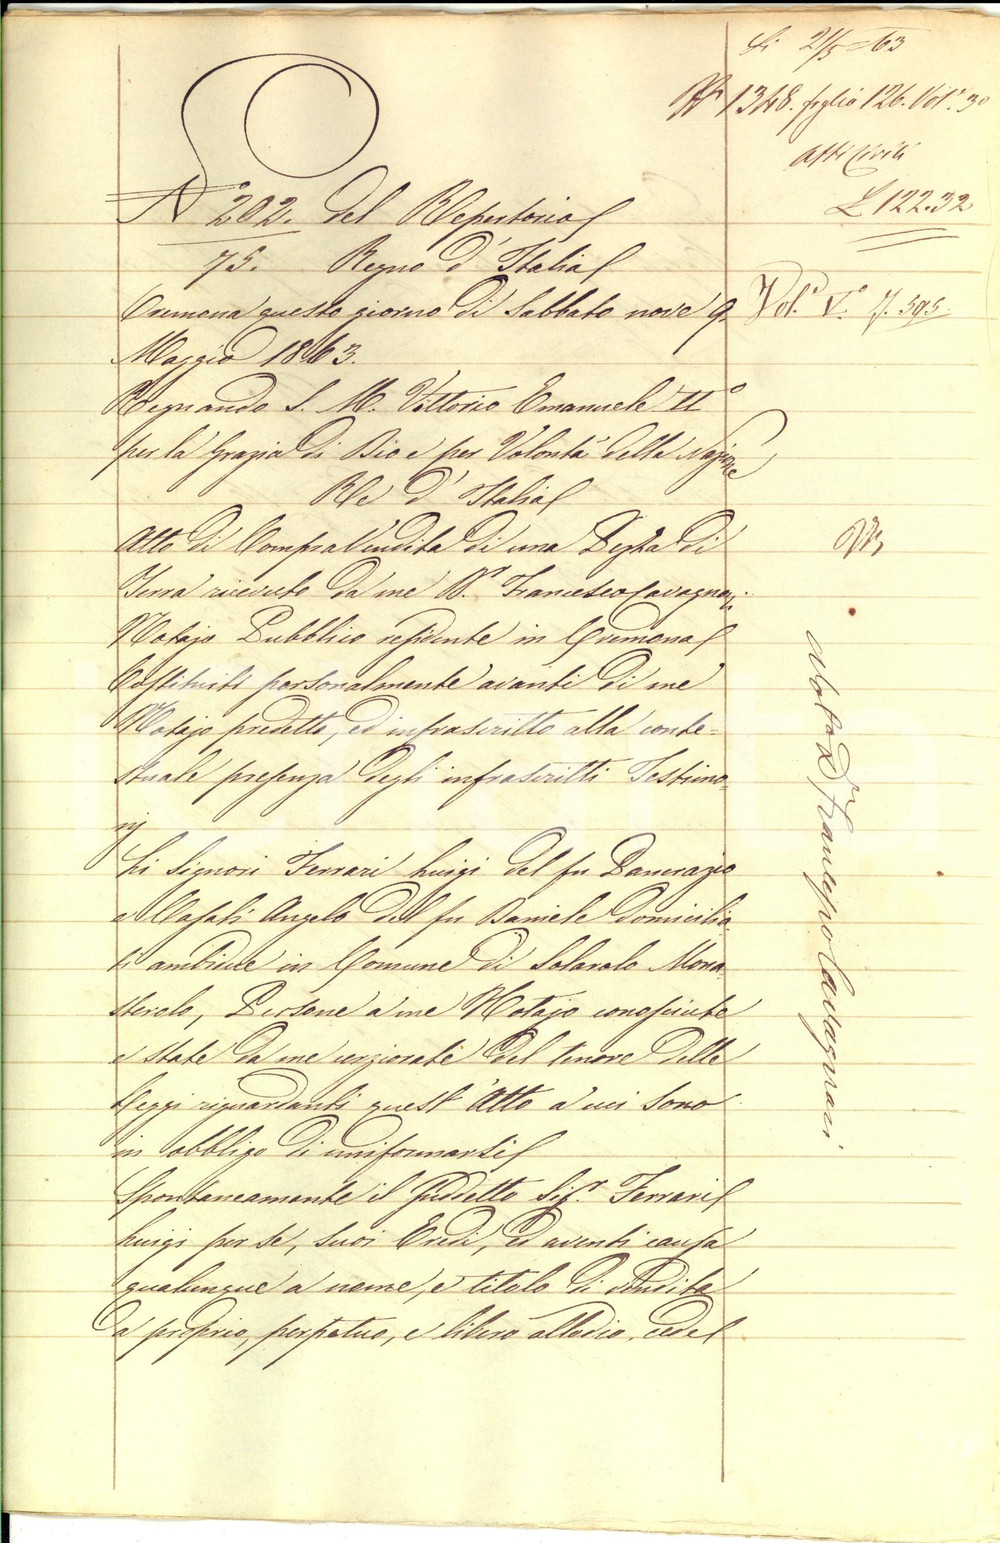 li 21/5 = 63
N° 1348. foglio 126. Vol. 3°
Atti Civili
£ 122.32
N° 202. del Repertorio
75. Regno d'Italia
Vol.° V.° f. 595.
Cremona questo giorno di Sabbato nove 9
Maggio 1863.
Regnando S. M. Vittorio Emanuele II°
per la Grazia di Dio e per Volontà della Nazione
Re d'Italia
Atto di Compravendita di una Pezza di
Terra ricevuto da me D.r Francesco Cavagnari
Notajo Pubblico residente in Cremona
Costituiti personalmente avanti di me
Notajo predetto, ed infrascritto alla conte=
stuale presenza degli infrascritti Testimo=
nj
Li Signori Ferrari Luigi del fu Pancrazio
e Casati Angelo del fu Daniele domicilia
ti ambidue in Comune di Solarolo Mona
sterolo, Persone a me Notajo conosciute
e state da me cerziorate del tenore delle
Leggi riguardanti quest'Atto a cui sono
in obbligo di uniformarsi
Spontaneamente il suddetto Sig.r Ferrari
Luigi per se, suoi Eredi, ed aventi causa
qualunque a nome, e titolo di vendita
a proprio, perpetuo, e libero allodio, cede
Notajo D.r Francesco Cavagnari